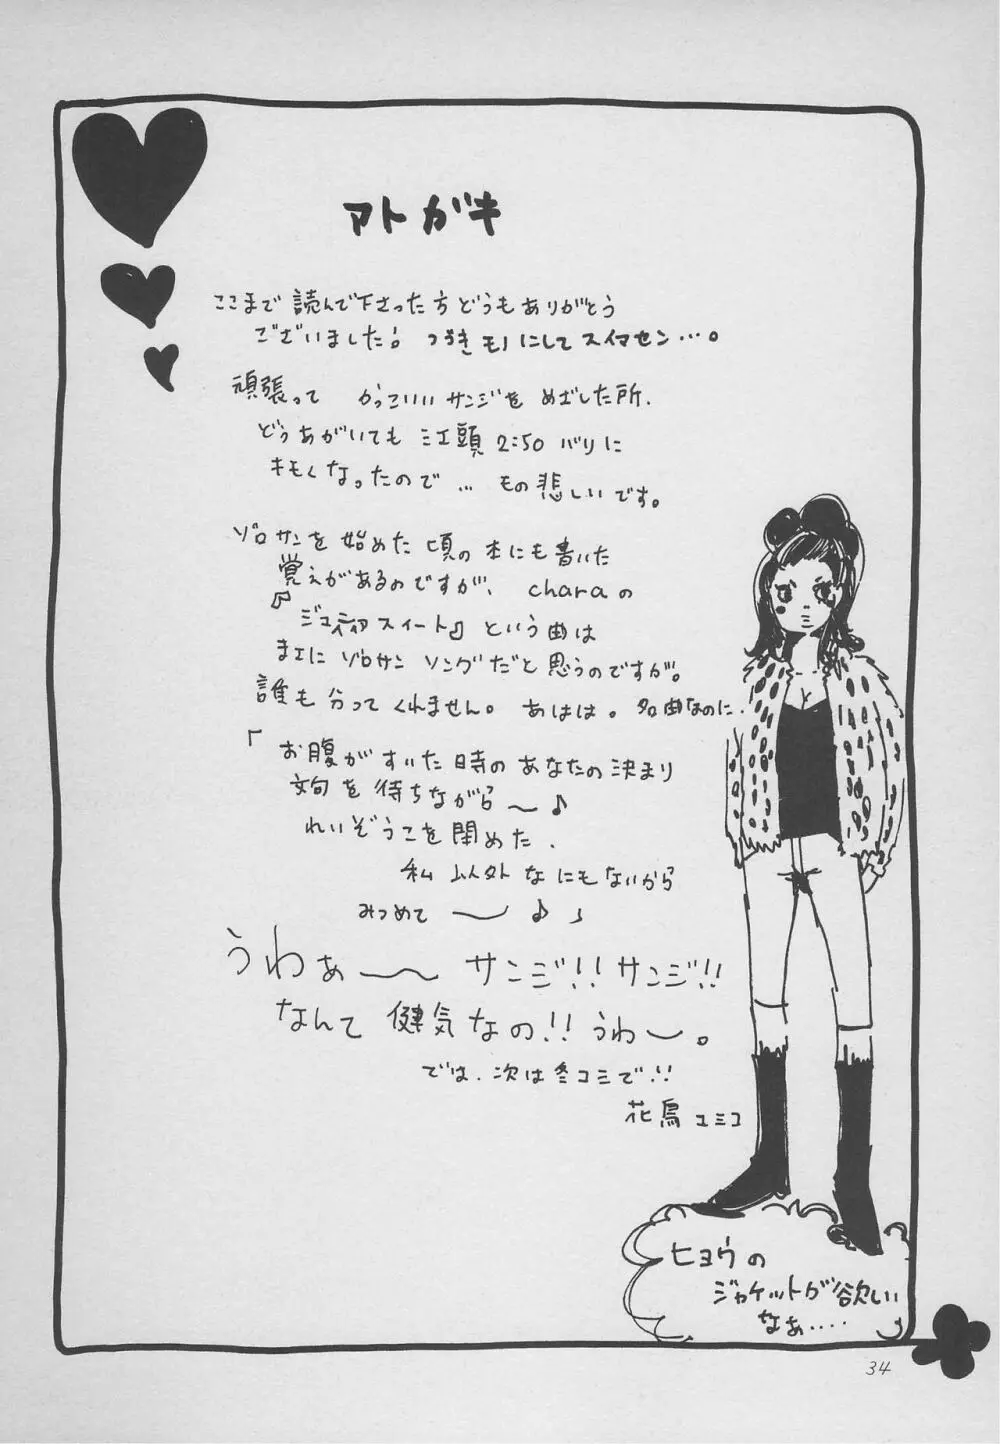 アトガキ
ここまで読んで下さった方どうもありがとう
ございました! つづきモノにしてスイマセン…。
頑張って かっこいいサンジをめざした所、
どうあがいても 江頭2:50バリに
キモくなったので… もの悲しいです。
ゾロサンを始めた頃の本にも書いた
覚えがあるのですが、 charaの
『ジュディアスイート』という曲は
まさに ゾロサン ソングだと思うのですが。
誰も分ってくれません。 あはは。名曲なのに、
「お腹がすいた時のあなたの決まり
文句を待ちながら〜♪
れいぞうこを閉めた、
私以外なにもないから
みつめて〜♪」
うわぁ〜 サンジ!!サンジ!!
なんて健気なの!! うわー。
では、次は冬コミで!!
花鳥ユミコ
ヒョウの
ジャケットが欲しい
なぁ‥‥
34